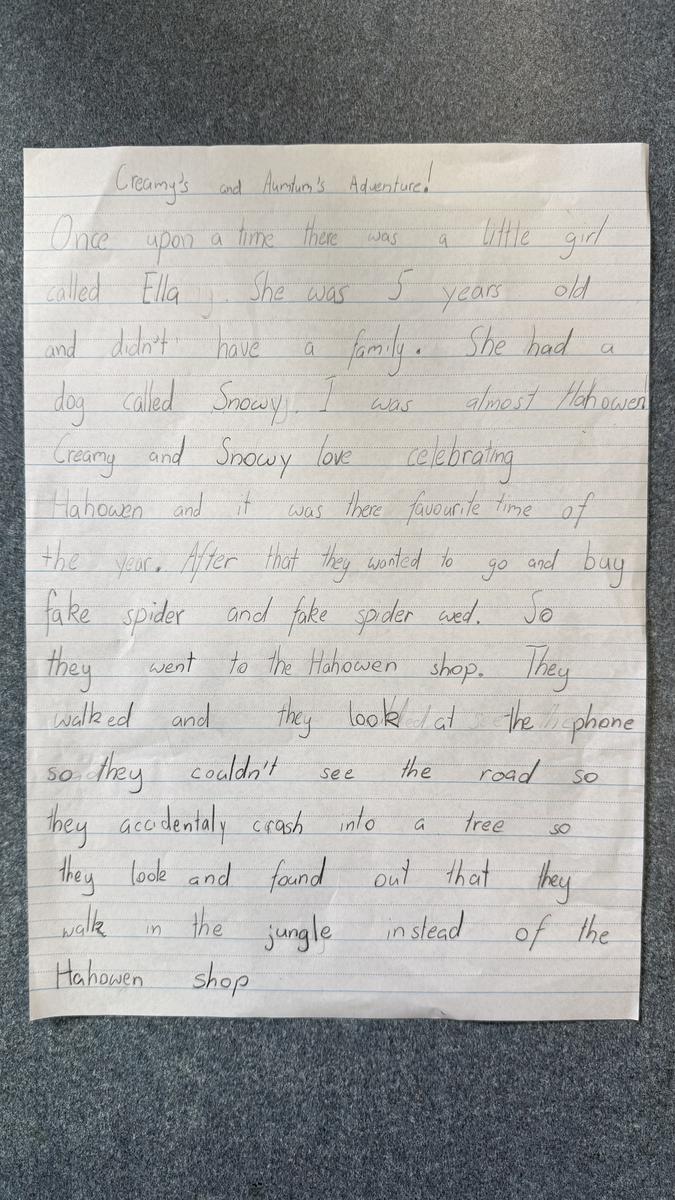 Creamy's and Aumtum's Adventure!
Once upon a time there was a little girl
called Ella. She was 5 years old
and didn't have a family. She had a
dog called Snowy. I was almost Hahowen
Creamy and Snowy love celebrating
Hahowen and it was there favourite time of
the year. After that they wanted to go and buy
fake spider and fake spider wed. So
they went to the Hahowen shop. They
walked and they look at the phone
so they couldn't see the road so
they accidentaly crash into a tree so
they look and found out that they
walk in the jungle instead of the
Hahowen shop